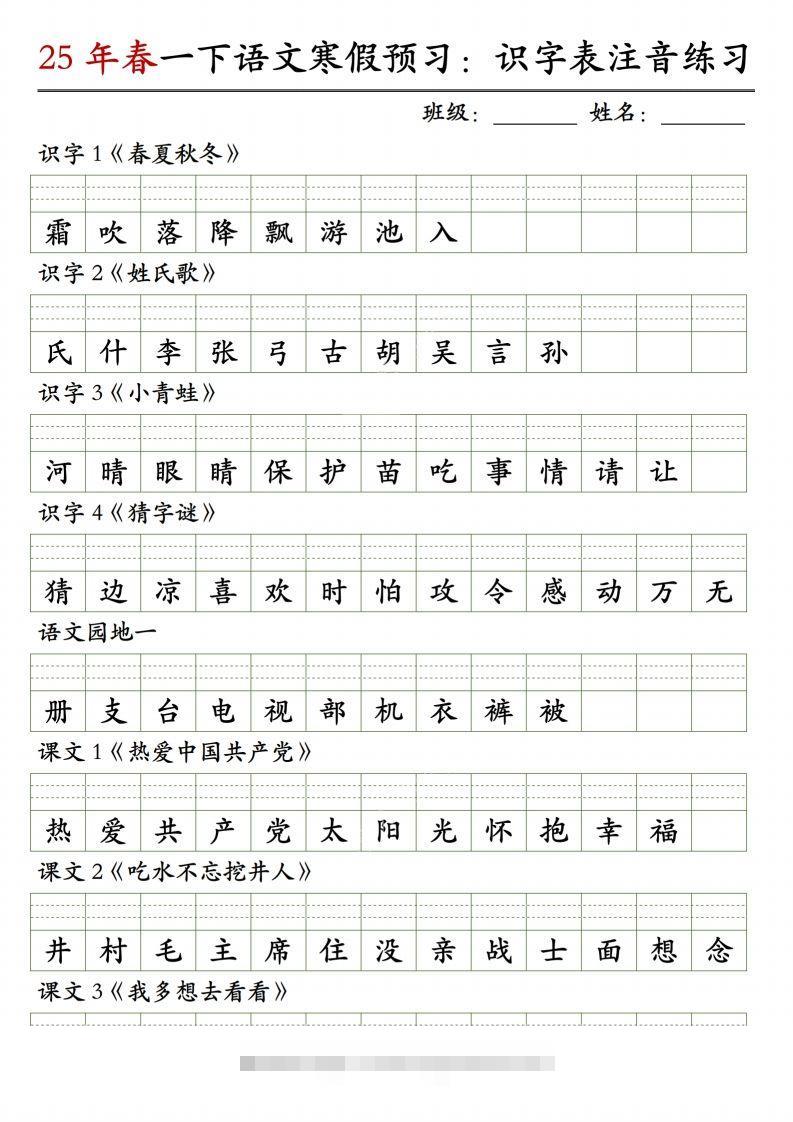 25 年春一下语文寒假预习：识字表注音练习
班级：________ 姓名：________
识字 1《春夏秋冬》
霜 吹 落 降 飘 游 池 入
识字 2《姓氏歌》
氏 什 李 张 弓 古 胡 吴 言 孙
识字 3《小青蛙》
河 晴 眼 睛 保 护 苗 吃 事 情 请 让
识字 4《猜字谜》
猜 边 凉 喜 欢 时 怕 攻 令 感 动 万 无
语文园地一
册 支 台 电 视 部 机 衣 裤 被
课文 1《热爱中国共产党》
热 爱 共 产 党 太 阳 光 怀 抱 幸 福
课文 2《吃水不忘挖井人》
井 村 毛 主 席 住 没 亲 战 士 面 想 念
课文 3《我多想去看看》